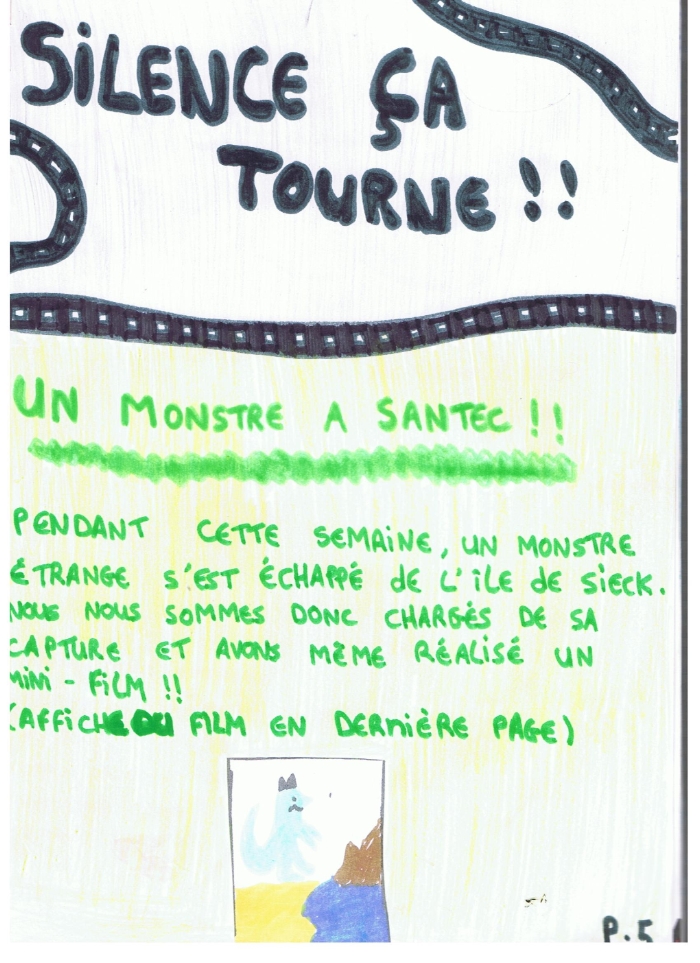 SiLENCE ÇA
TOURNE !!
UN MONSTRE A SANTEC !!
PENDANT CETTE SEMAiNE, UN MONSTRE
ÉTRANGE S'EST ÉCHAPPÉ de L'iLE de SiECK.
NOUS NOUS SOMMES DONC CHARGÉS DE SA
CAPTURE ET AVONS MÊME RÉALiSÉ UN
MiNi - FiLM !!
(AFFiCHE DU FILM EN DERNiÈRE PAGE)
P.5